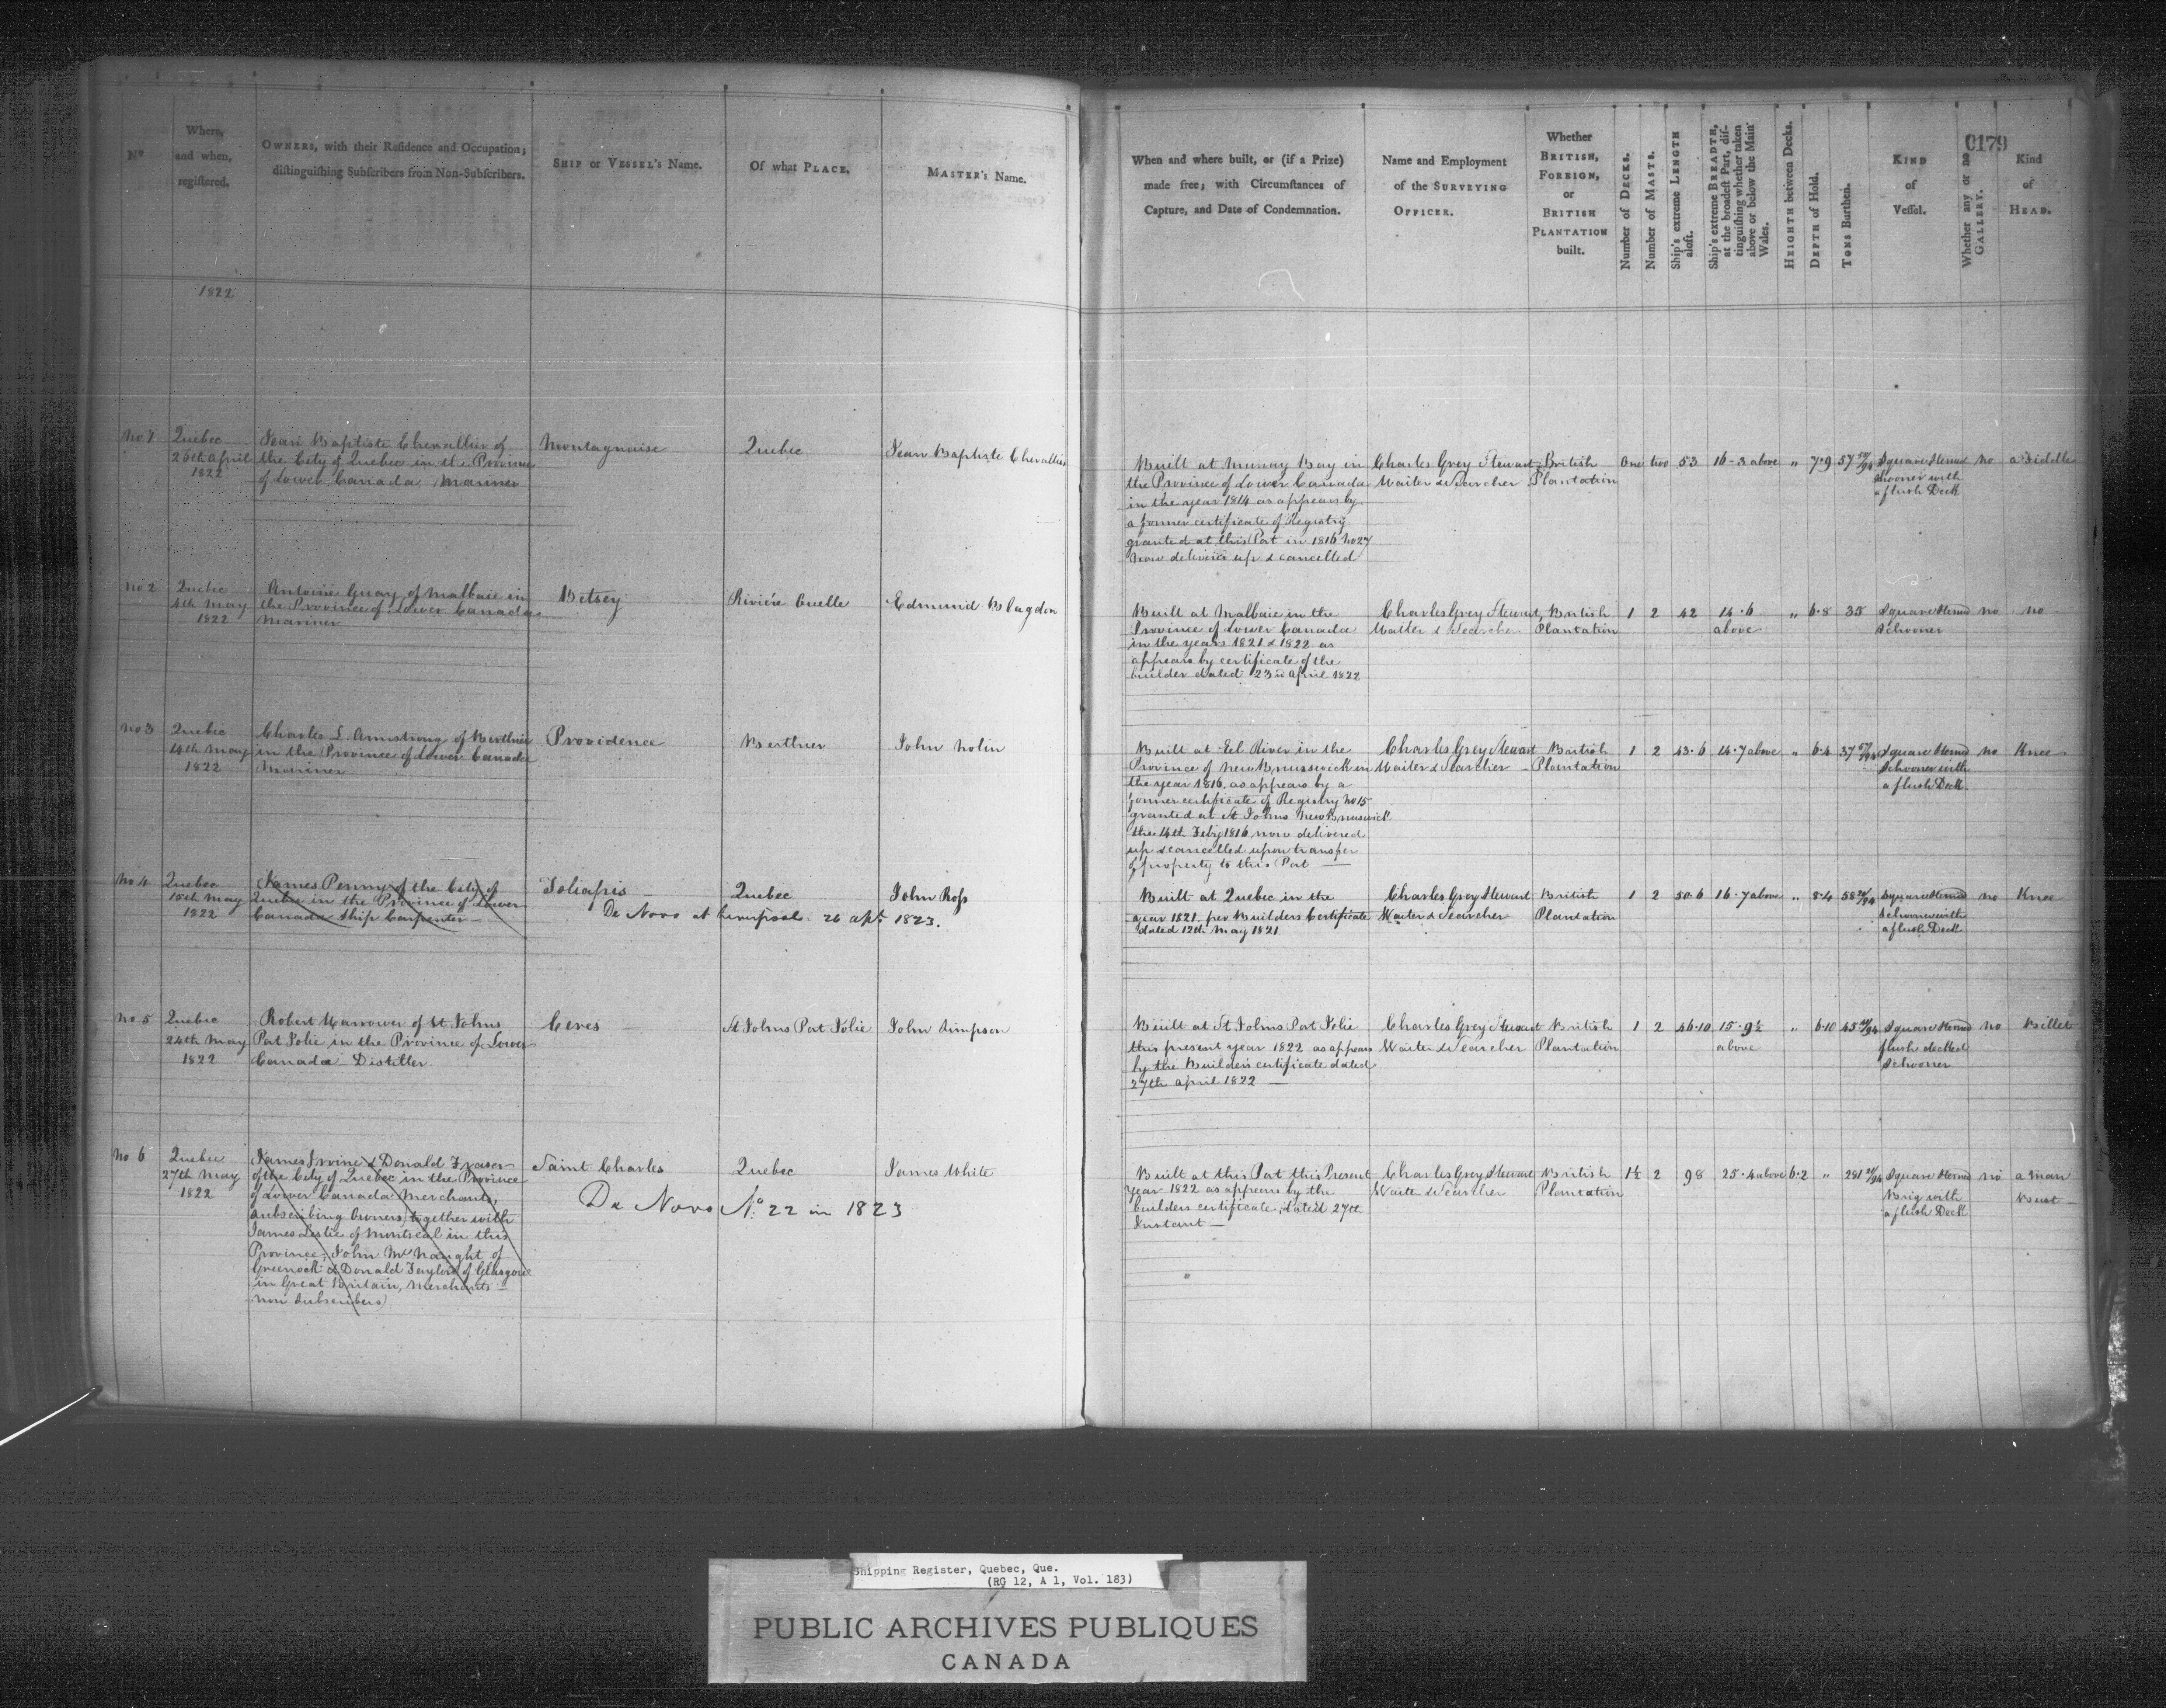 0179
Nº
Where,
and when,
regiſtered.
OWNERS, with their Reſidence and Occupation;
diſtinguiſhing Subſcribers from Non-Subſcribers.
SHIP or VESSEL's Name.
Of what PLACE.
MASTER's Name.
When and where built, or (if a Prize)
made free; with Circumſtances of
Capture, and Date of Condemnation.
Name and Employment
of the SURVEYING
OFFICER.
Whether
BRITISH,
FOREIGN,
or
BRITISH
PLANTATION
built.
Number of DECKS.
Number of MASTS.
Ship's extreme LENGTH
aloft.
Ship's extreme BREADTH,
at the broadeſt Part, diſ-
tinguiſhing whether taken
above or below the Main
Wales.
HEIGHTH between Decks.
DEPTH of Hold.
TONS Burthen.
KIND
of
Veſſel.
Whether any or no
GALLERY.
Kind
of
HEAD.
1822
No 1
Quebec
26th April
1822
Jean Baptiste Chevallier of
the City of Quebec in the Province
of Lower Canada Mariner
Montagnaise
Quebec
Jean Baptiste Chevallier
Built at Murray Bay in
the Province of Lower Canada
in the year 1814 as appears by
a former certificate of Registry
granted at this Port in 1816 No 27
now delivered up & cancelled
Charles Grey Stewart
Waiter & Searcher
British
Plantation
One two 53 16-3 above " 7·9 57
Square Sterned
Schooner with
a flush Deck
no
a Fiddle
No 2
Quebec
4th May
1822
Antoine Guay of Malbaie in
the Province of Lower Canada
Mariner
Betsey
Riviére Ouelle
Edmund Blagdon
Built at Malbaie in the
Province of Lower Canada
in the years 1821 & 1822 as
appears by certificate of the
builder dated 23rd April 1822
Charles Grey Stewart,
Waiter & Searcher
British
Plantation
1 2 42 14·6
above
" 6·8 35
Square Sterned
Schooner
no
no
No 3
Quebec
14th May
1822
Charles L. Armstrong of Berthier
in the Province of Lower Canada
Mariner
Providence
Berthier
John Nolin
Built at Eel River in the
Province of New Brunswick in
the year 1816 as appears by a
former certificate of Registry No 15
granted at St Johns New Brunswick
the 14th Feby 1816 now delivered
up & cancelled upon transfer
of property to this Port
Charles Grey Stewart
Waiter & Searcher
British
Plantation
1 2 43·6 14·7 above " 6·4 37
Square Sterned
Schooner with
a flush Deck
no
Knee
No 4
Quebec
15th May
1822
James Penny of the City of
Quebec in the Province of Lower
Canada Ship Carpenter
Quebec
John Roſs
De Novo at Liverpool 26 apl. 1823.
Built at Quebec in the
year 1821 per Builders Certificate
dated 12th May 1821
Charles Grey Stewart
Waiter & Searcher
British
Plantation
1 2 50·6 16·7 above " 8·4 58
Square Sterned
Schooner with
a flush Deck
no
Knee
No 5
Quebec
24th May
1822
Robert Harrower of St Johns
Port Jolie in the Province of Lower
Canada Distiller
Ceres
St Johns Port Jolie
John Simpson
Built at St Johns Port Jolie
this present year 1822 as appears
by the Builders certificate dated
27th April 1822
Charles Grey Stewart
Waiter & Searcher
British
Plantation
1 2 46·10 15·9½
above
" 6·10 45
Square Sterned
flush decked
Schooner
no
Billet
No 6
Quebec
27th May
1822
James Irvine & Donald Fraser
of the City of Quebec in the Province
of Lower Canada Merchants,
Subscribing Owners, together with
James Leslie of Montreal in this
Province, John McNaught of
Greenock & Donald Taylor of Glasgow
in Great Britain, Merchants
non Subscribers
Saint Charles
Quebec
James White
De Novo No. 22 in 1823
Built at this Port this Present
year 1822 as appears by the
builders certificate, dated 27th
Instant
Charles Grey Stewart
Waiter & Searcher
British
Plantation
1½ 2 98 25·4 above 6·2 " 281
Square Sterned
Brig with
a flush Deck
no
a man
Bust
Shipping Register, Quebec, Que.
(RG 12, A 1, Vol. 183)
PUBLIC ARCHIVES PUBLIQUES
CANADA